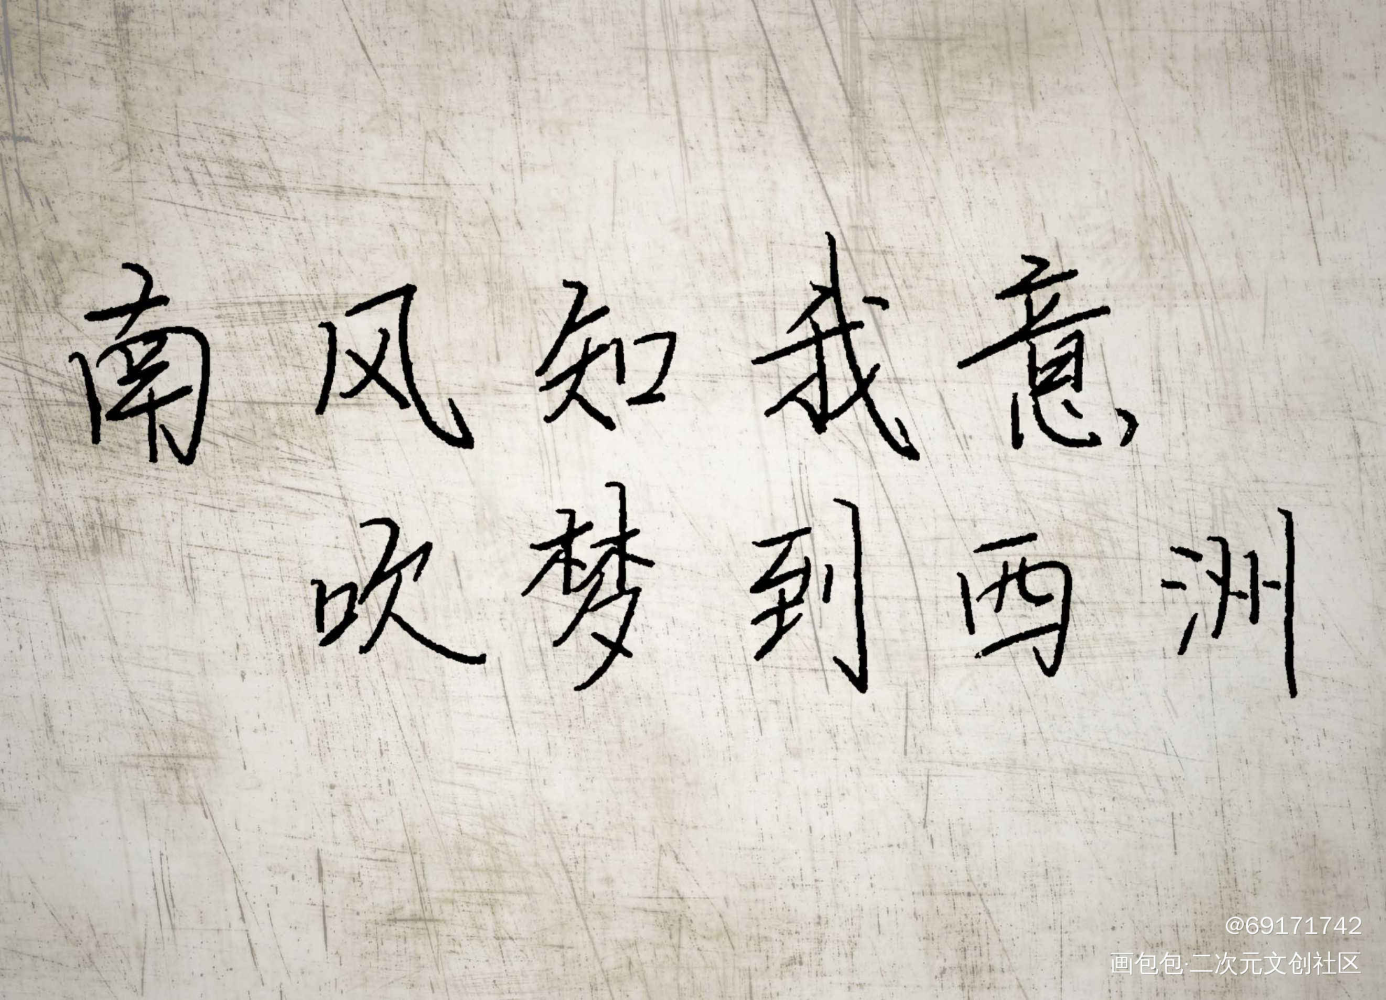 南风知我意,
吹梦到西洲
@69171742
画包包·二次元文创社区